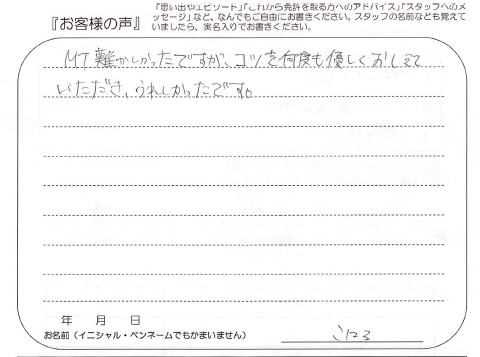 「思い出やエピソード」「これから免許を取る方へのアドバイス」「スタッフへのメ
『お客様の声』 ッセージ」など、なんでもご自由にお書きください。スタッフの名前なども覚えて
いましたら、実名入りでお書きください。
MT難かしかったですが、コツを何度も優しくおしえて
いただき、うれしかったです。
年 月 日
お名前(イニシャル・ペンネームでもかまいません)